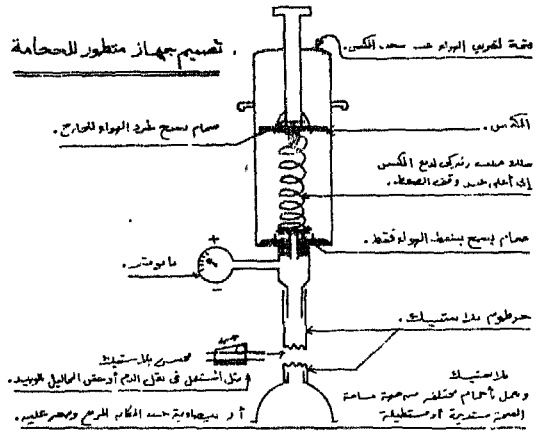 تصميم جهاز متطور للحجامة.
فتحة لتفريغ الهواء عند سحب المكبس.
المكبس.
صمام يسمح بطرد الهواء للخارج.
سلك صلب زنبركي لدفع المكبس
إلى أعلى عند وقف الضغط.
صمام يسمح بشفط الهواء فقط.
+
مانومتر.
-
خرطوم بلاستيك.
محبس بلاستيك
مثل المستعمل في نقل الدم أو حقن المحاليل بالوريد.
بلاستيك
وبعمل أحجام مختلفة من جهة مساحة
الفتحة مستديرة أو مستطيلة
أو بيضاوية حسب المكان المرجح وضعه عليه.